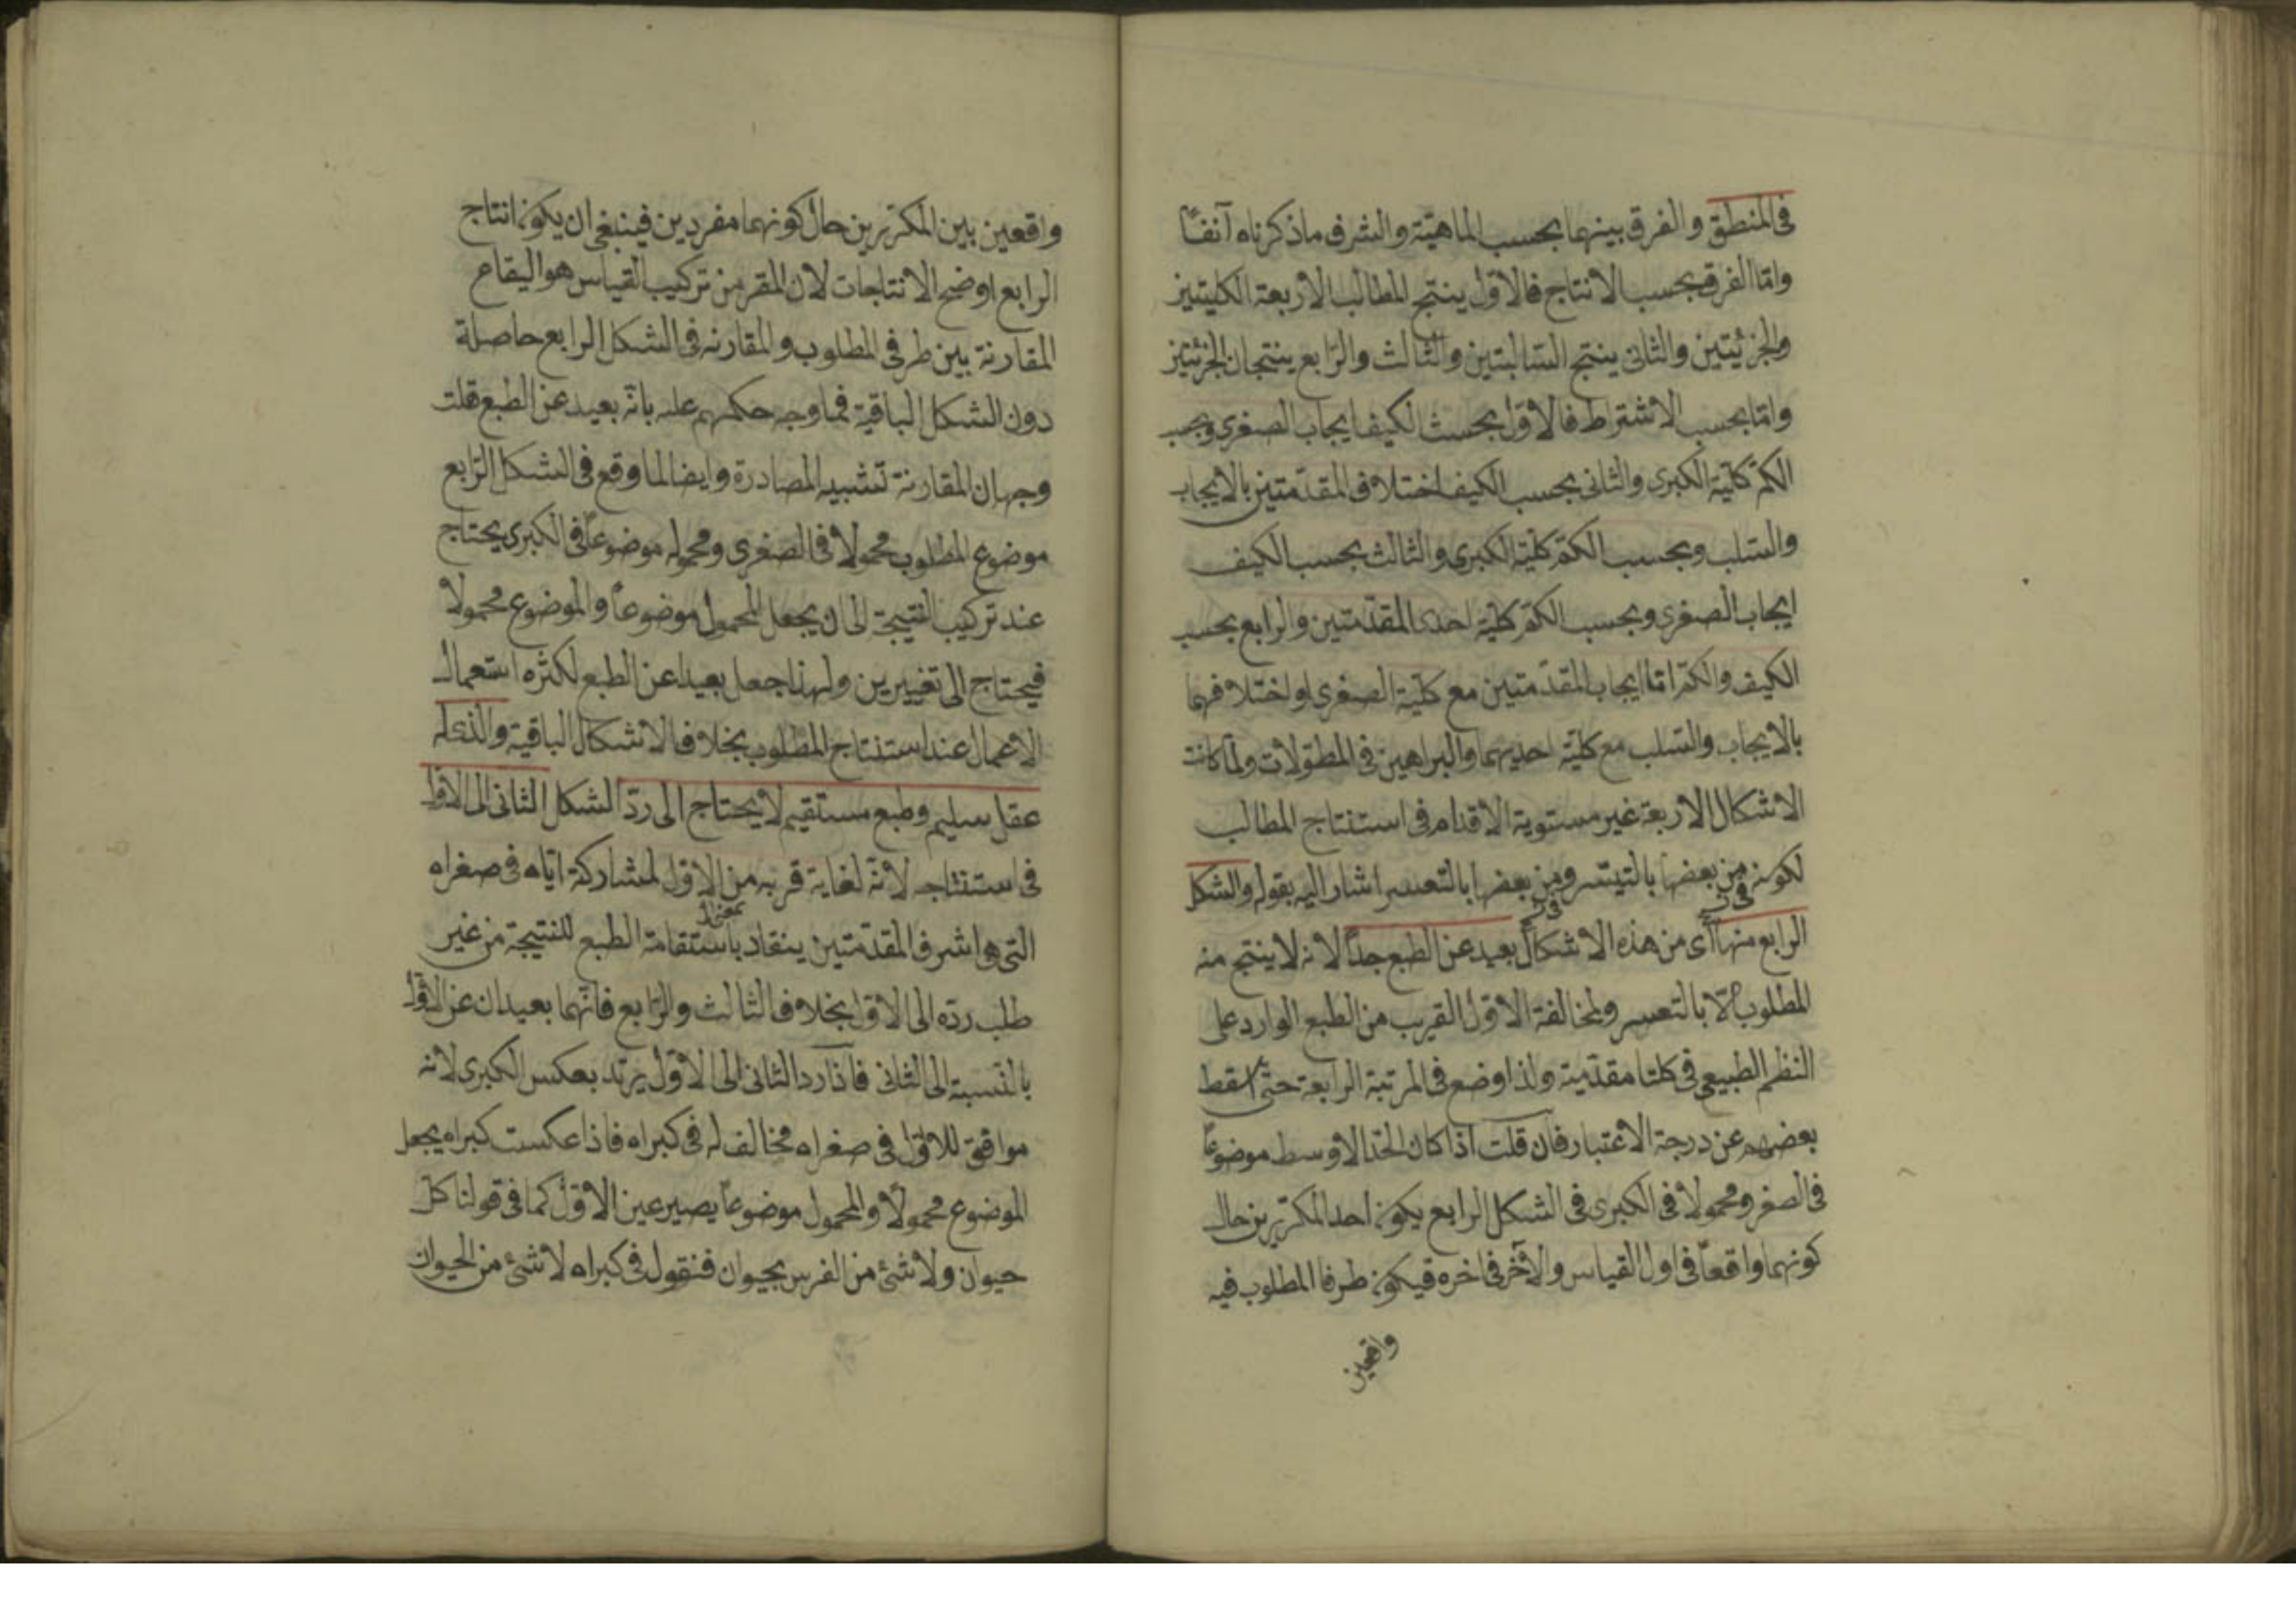 في المنطق والفرق بينهما بحسب الماهيّة والشرف ماذكرناه آنفاً
وامّا الفرق بحسب الانتاج فالاوّل ينتج المطالب الاربعة الكليتين
والجزئيتين والثانى ينتج السّالبتين والثالث والرّابع ينتجان الجزئيتين
وامّا بحسب الاشتراط فالاوّل بحسب الكيف ايجاب الصغرى وبحسب
الكمّ كلّية الكبرى والثانى بحسب الكيف اختلاف المقدّمتين بالايجاب
والسّلب وبحسب الكمّ كلّية الكبرى والثالث بحسب الكيف
ايجاب الصغرى وبحسب الكمّ كلّية احدى المقدّمتين والرابع بحسب
الكيف والكمّ امّا ايجاب المقدّمتين مع كلّية الصغرى او اختلافهما
بالايجاب والسّلب مع كليّة احديهما والبراهين فى المطوّلات ولمّا كانت
الاشكال الاربعة غير مستوية الاقدام فى استنتاج المطالب
لكونه من بعضها بالتيسّر ومن بعضها بالتعسر اشار اليه بقوله والشكل
الرابع منها اى من هذه الاشكال بعيد عن الطبع جداً لانه لا ينتج منه
المطلوب الّا بالتعسر ولمخالفة الاوّل القريب من الطبع الوارد على
النظم الطبيعي فى كلتا مقدّميه ولذا وضع فى المرتبة الرابعة حتّى اسقط
بعضهم عن درجة الاعتبار فان قلت اذا كان الحدّ الاوسط موضوعاً
فى الصغر ومحمولا فى الكبرى فى الشكل الرابع يكون احد المكرّرين حال
كونهما واقعاً فى اول القياس والآخر فى اخره فيكون طرفا المطلوب فيه
واقعين
واقعين بين المكرّرين حال كونهما مفردين فينبغى ان يكون انتاج
الرابع اوضح الانتاجات لان المقر من تركيب القياس هو ايقاع
المقارنة بين طرفى المطلوب والمقارنه فى الشكل الرابع حاصلة
دون الشكل الباقية فما وجه حكمهم عليه بانّه بعيد عن الطبع قلت
وجهه ان المقارنة تشبيه المصادرة وايضا لما وقع فى الشكل الرّابع
موضوع المطلوب محمولا فى الصغرى ومحموله موضوعاً فى الكبرى يحتاج
عند تركيب النتيجة الى ان يجعل المحمول موضوعاً والموضوع محمولا
فيحتاج الى تغييرين ولهذا جعل بعيدا عن الطبع لكثره استعمال
الاعمال عند استنتاج المطلوب بخلاف الاشكال الباقية والذى له
عقل سليم وطبع مستقيم لا يحتاج الى ردّ الشكل الثانى الى الاوّل
فى استنتاجه لانّه لغاية قربه من الاوّل لمشاركة ايّاه فى صغراه
التى هى اشرف المقدّمتين ينقاد باستقامة الطبع للنتيجة من غير
طلب ردّه الى الاوّل بخلاف الثالث والرّابع فانّهما بعيدان عن الاوّل
بالنّسبة الى الثانى فاذا ردّ الثانى الى الاوّل يرتد بعكس الكبرى لانه
موافق للاوّل فى صغراه مخالف له فى كبراه فاذا عكست كبراه يجعل
الموضوع محمولا والمحمول موضوعاً يصير عين الاوّل كما فى قولنا كلّ
حيوان ولا شئ من الفرس بحيوان فنقول فى كبراه لا شئ من الحيوان